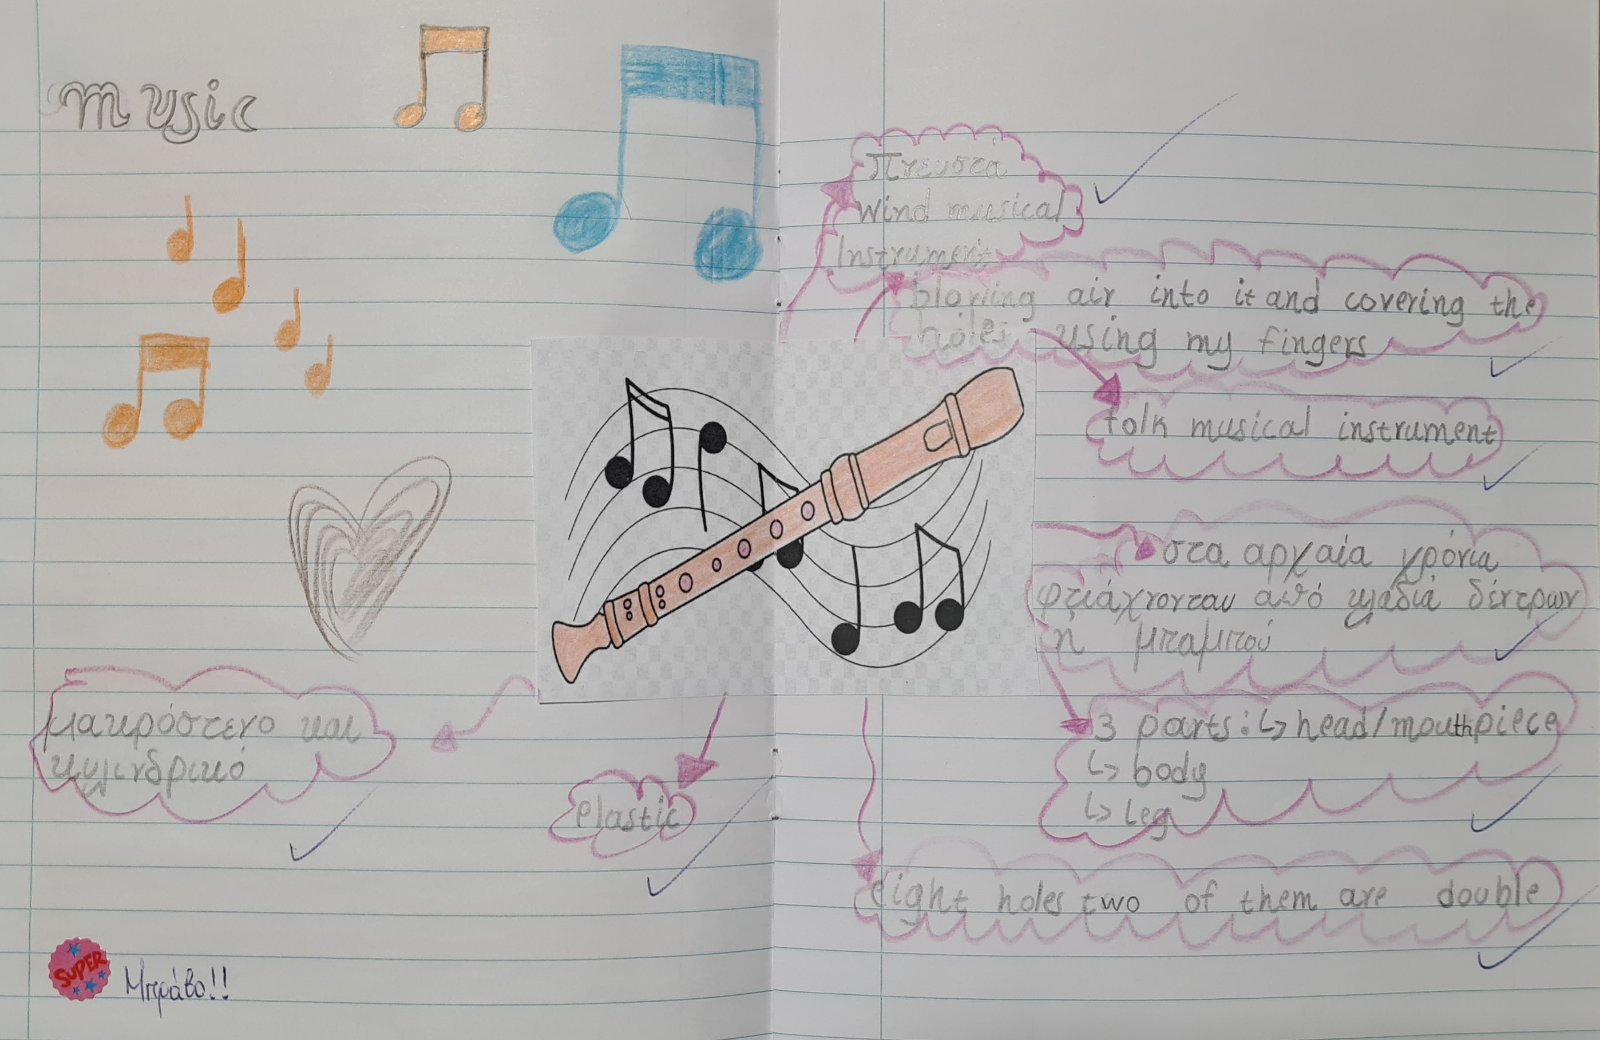 music
πνευστά
wind musical
Instrument
blowing air into it and covering the
holes using my fingers
folk musical instrument
στα αρχαία χρόνια
φτιάχνονταν από κλαδιά δέντρων
ή μπαμπού
3 parts: ↳ head/mouthpiece
↳ body
↳ leg
eight holes two of them are double
Plastic
μακρόστενο και
κυλινδρικό
SUPER
Μπράβο!!